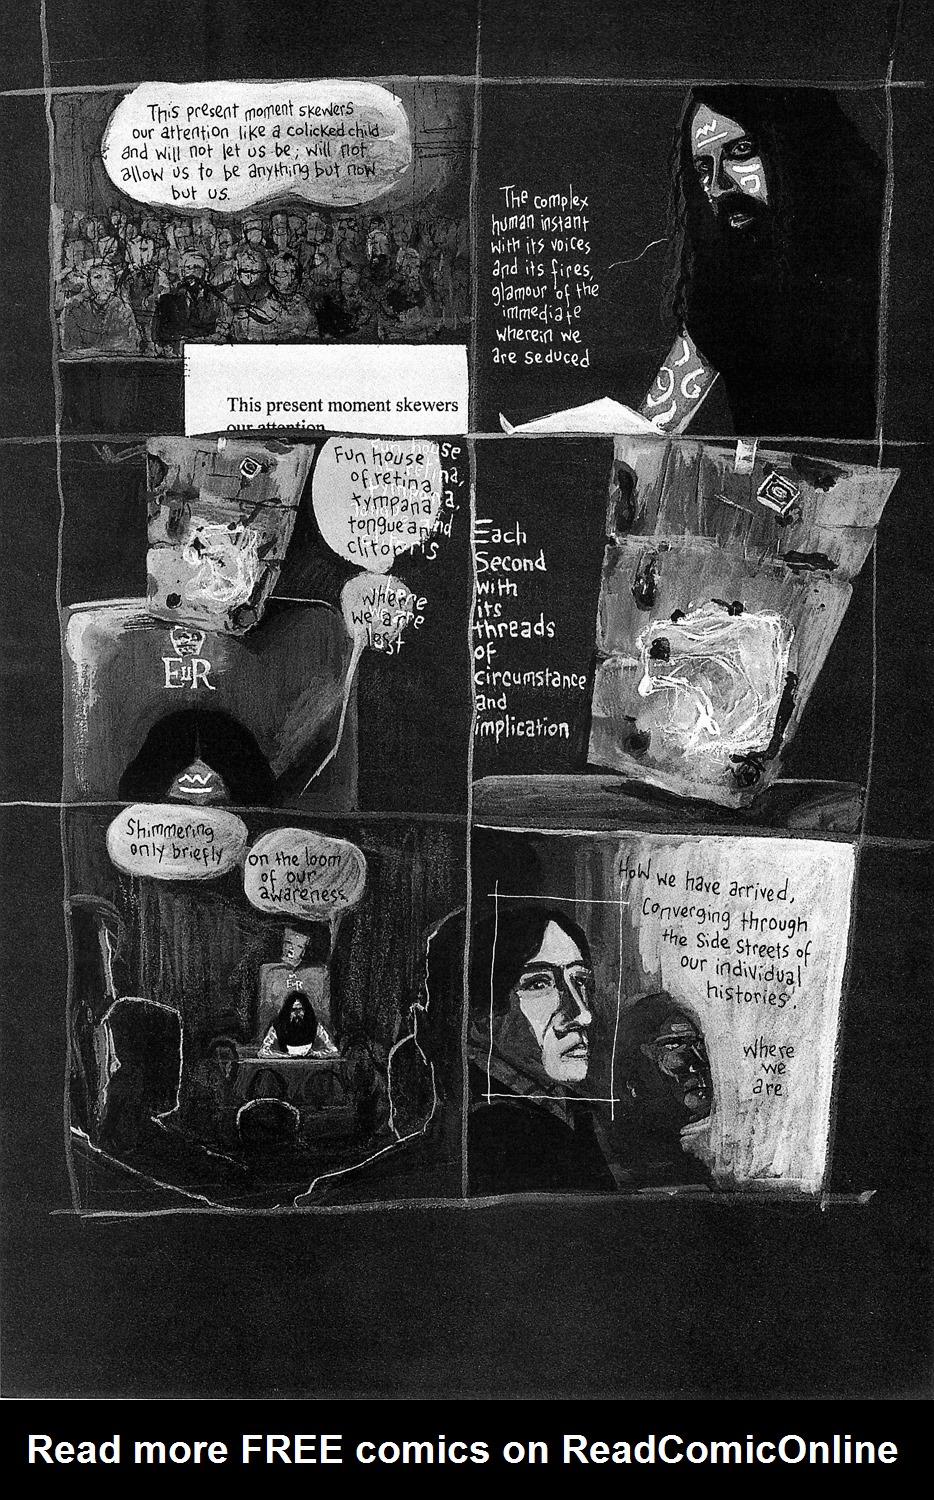 This present moment skewers
our attention like a colicked child
and will not let us be; will not
allow us to be anything but now
but us.
This present moment skewers
our attention
The complex
human instant
with its voices
and its fires,
glamour of the
immediate
wherein we
are seduced
Fun house
of retina
tympana,
tongue and
clitorris
Where
we are
lest
EIIR
Each
Second
with
its
threads
of
circumstance
and
implication
Shimmering
only briefly
on the loom
of our
awareness.
EIIR
How we have arrived,
Converging through
the side streets of
our individual
histories.
Where
we
are
Read more FREE comics on ReadComicOnline